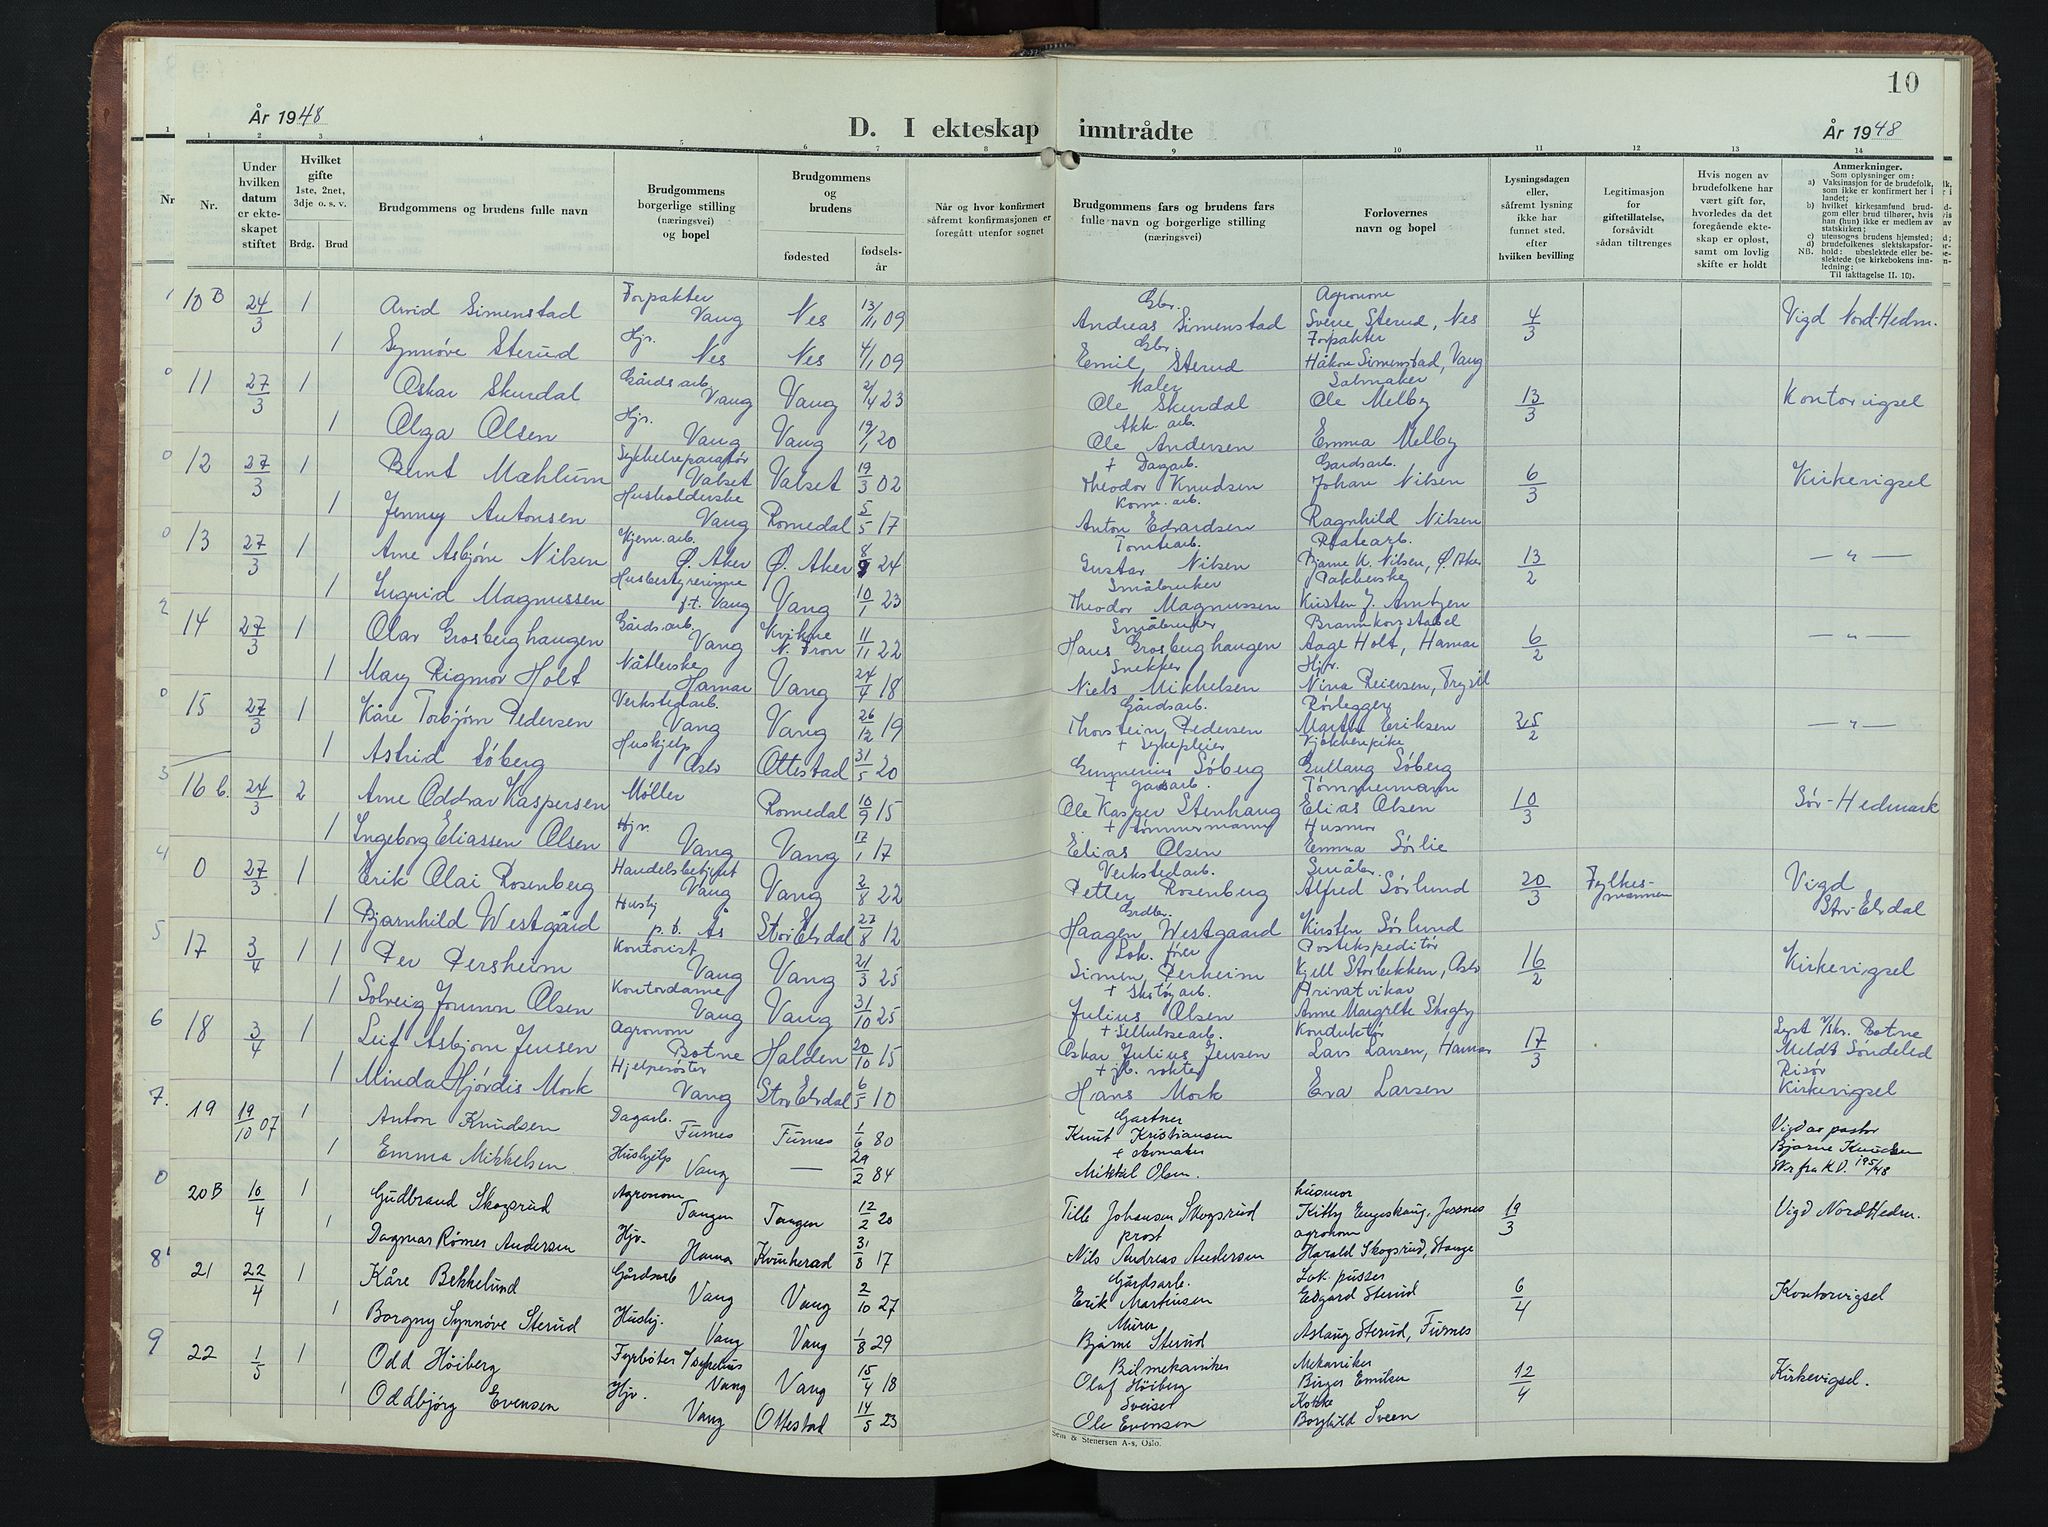 10
År 1948
D. I ekteskap inntrådte
År 1948
1 2 3 4 5 6 7 8 9 10 11 12 13 14
Nr.
Under hvilken datum er ekteskapet stiftet
Hvilket gifte 1ste, 2net, 3dje o. s. v.
Brdg. Brud
Brudgommens og brudens fulle navn
Brudgommens borgerlige stilling (næringsvei) og bopel
Brudgommens og brudens
fødested
fødselsår
Når og hvor konfirmert såfremt konfirmasjonen er foregått utenfor sognet
Brudgommens fars og brudens fars fulle navn og borgerlige stilling (næringsvei)
Forlovernes navn og bopel
Lysningsdagen eller, såfremt lysning ikke har funnet sted, efter hvilken bevilling
Legitimasjon for giftetillatelse, forsåvidt sådan tiltrenges
Hvis nogen av brudefolkene har vært gift før, hvorledes da det foregående ekteskap er opløst, samt om lovlig skifte er holdt
Anmerkninger.
Som oplysninger om:
a) Vaksinasjon for de brudefolk, som ikke er konfirmert her i landet;
b) hvilket kirkesamfund brudgom eller brud tilhører, hvis han (hun) ikke er medlem av statskirken;
c) utensogns brudens hjemsted;
d) brudefolkenes slektskapsforhold: ubeslektede eller beslektede (se kirkebokens innledning;
NB.
Til iakttagelse II. 10).
Forpakter Gbr. Agronom
10 B 24/3 1 Arvid Simenstad Vang Nes 13/11 09 Andreas Simenstad Sverre Sterud, Nes 4/3 Vigd Nord-Hedm.
Hjv. Gbr. Forpakter
1 Synnøve Sterud Nes Nes 4/1 09 Emil Sterud Håkon Simenstad, Vang
Gårdsarb. Maler Salmaker
11 27/3 1 Oskar Skurdal Vang Vang 2/4 23 Ole Skurdal Ole Melby 13/3 Kontorvigsel
Hjv. Akk. arb.
1 Olga Olsen Vang Vang 19/1 20 Ole Andersen Emma Melby
Sykkelreparatør + Dagarb. Gårdsarb.
12 27/3 1 Bernt Mæhlum Valset Valset 19/3 02 Theodor Knudsen Johan Nilsen 6/3 Kirkevigsel
Husholderske Kom. arb.
1 Jenny Antonsen Vang Romedal 5/5 17 Anton Edvardsen Ragnhild Nilsen
Kjem. arb. Tomtearb. Platearb.
13 27/3 1 Arne Asbjørn Nilsen Ø. Aker Ø. Aker 8/9 24 Gustav Nilsen Bjarne K. Nilsen, Ø. Aker 13/2 — " —
Husbestyrerinne Småbruker Pakkerske
1 Ingrid Magnussen f.t. Vang Vang 10/1 23 Theodor Magnussen Kirsten J. Arntzen
Gårds.arb. Småbruker
14 27/3 1 Olav Grosberghaugen Vang Kvikne N. Fron 11/11 22 Hans Grosberghaugen Aage Holt, Hamar 6/2 — " —
Nåtlerske Snekker Hjv.
1 Mary Rigmor Holt Hamar Vang 24/4 18 Niels Mikkelsen Nina Reiersen, Trysil
Verkstedarb. Gårdsarb. Rørlegger
15 27/3 1 Kåre Torbjørn Pedersen Vang Vang 26/12 19 Thorstein Pedersen Martin Eriksen 25/2 — " —
Hushjelp + Sykepleier Kjøkkenpike
1 Astrid Søberg Oslo Ottestad 31/5 20 Gunnerius Søberg Gullaug Søberg
Møller + Gårdsarb. Tømmermann
16 b. 24/3 2 Arne Oddvar Kaspersen Romedal 10/9 15 Ole Kasper Stenhaug Elias Olsen 10/3 Sør-Hedmark
Hjv. + tømmermann Husmor
1 Ingeborg Eliassen Olsen Vang Vang 17/1 17 Elias Olsen Emma Sørlie
Handelsbetjent Verkstedarb. Småbr.
0 27/3 1 Erik Olai Rosenberg Vang Vang 2/8 22 Petter Rosenberg Alfred Sørlund 20/3 Fylkesmannen Vigd Stor-Elvdal
Hushj. Grdbr.
1 Bjarnhild Westgård p.t. Ås Stor Elvdal 27/8 12 Haagen Westgaard Kirsten Sørlund
Kontorist Lok. fører Postekspeditør
17 3/4 1 1 Per Persheim Vang Vang 21/3 25 Simen Perheim Kjell Storbekken, Oslo 16/2 Kirkevigsel
Kontordame + Skotøyarb. Privat vikar
1 Solveig Jorunn Olsen Vang Vang 31/10 25 Julius Olsen Anne Margrethe Skogly
Agronom + Sellulosearb. Konduktør
18 3/4 1 Leif Asbjørn Jensen Botne Halden 20/10 15 Oskar Julius Jensen Lars Larsen, Hamar 17/3 Lyst v/skr. Botne Meldt Søndeled Risør
Hjelpesøster + jb. vokter
1 Minda Hjørdis Mork Vang Stor Elvdal 6/5 10 Hans Mork Eva Larsen Kirkevigsel
Dagarb. Gartner
19 19/10 07 1 Anton Knudsen Furnes Furnes 1/6 80 Knut Kristiansen Vigd av pastor
Hushjelp + skomaker Bjarne Knudsen
1 Emma Mikkelsen. Vang — 29/2 84 Mikkel Olsen. 195/48
Agronom husmor
20 B 10/4 1 Gudbrand Skogsrud Tangen Tangen 12/2 20 Tille Johansen Skogsrud Kitty Engeskaug, Jessnes 19/3 Vigd Nord Hedm.
Hjv. prost agronom
1 Dagmar Rømer Andersen Hamar Kvinherad 31/8 17 Nils Andreas Andersen Harald Skogsrud, Stange
Gårdsarb Gårdsarb. Lok. pusser
21 22/4 1 Kåre Bekkelund Vang Vang 2/10 27 Erik Martinsen Edgard Sterud 6/4 Kontorvigsel
Hushj. Murer
1 Borgny Synnøve Sterud Vang Vang 1/8 29 Bjarne Sterud Aslaug Sterud, Furnes
Fyrbøter Bilmekaniker Mekaniker
22 1/5 1 Odd Höiberg Vang Vang 15/4 18 Olaf Höiberg Birger Emilsen 12/4 Kirkevigsel.
Hjv. Sveiser Kokke
1 Oddbjörg Evensen Vang Ottestad 14/5 23 Ole Evensen Borghild Sveen
Sem & Stenersen A-s, Oslo.